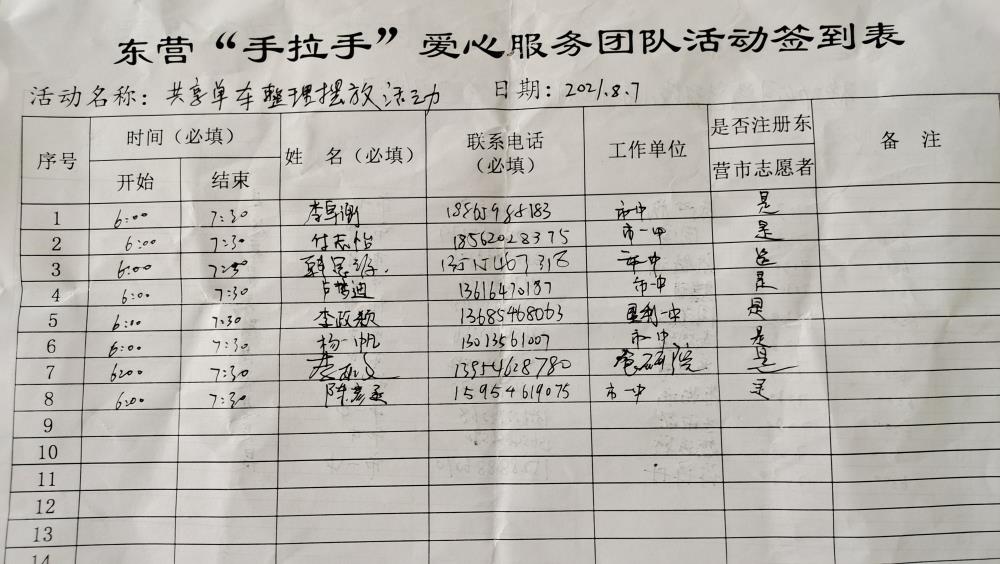 东营“手拉手”爱心服务团队活动签到表
活动名称：共享单车整理摆放活动 日期：2021.8.7
序号 时间（必填） 姓 名（必填） 联系电话（必填） 工作单位 是否注册东营市志愿者 备 注
开始 结束
1 6:00 7:30 18865988183 市中 是
2 6:00 7:30 付志怡 18562028375 市一中 是
3 6:00 7:30 13515467318 市中 是
4 6:00 7:30 卢梦迪 13616470187 市一中 是
5 6:00 7:30 李政颖 13685468063 垦利一中 是
6 6:00 7:30 杨一帆 13013561007 市中 是
7 6:00 7:30 13954628780 研院 是
8 6:00 7:30 陈彦丞 15954619075 市一中 是
9
10
11
12
13
14